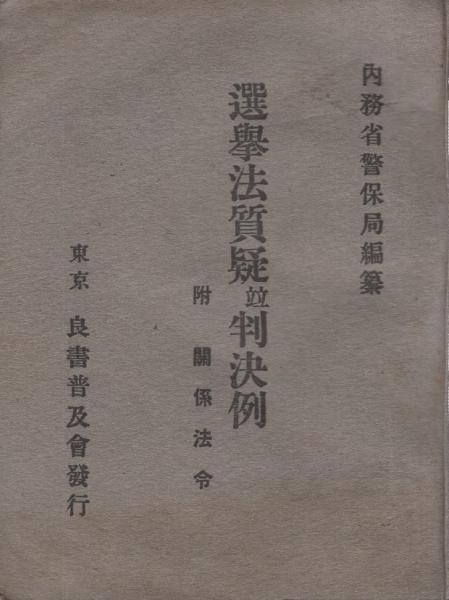 內務省警保局編纂
選擧法質疑竝判決例
附關係法令
東京 良書普及會發行